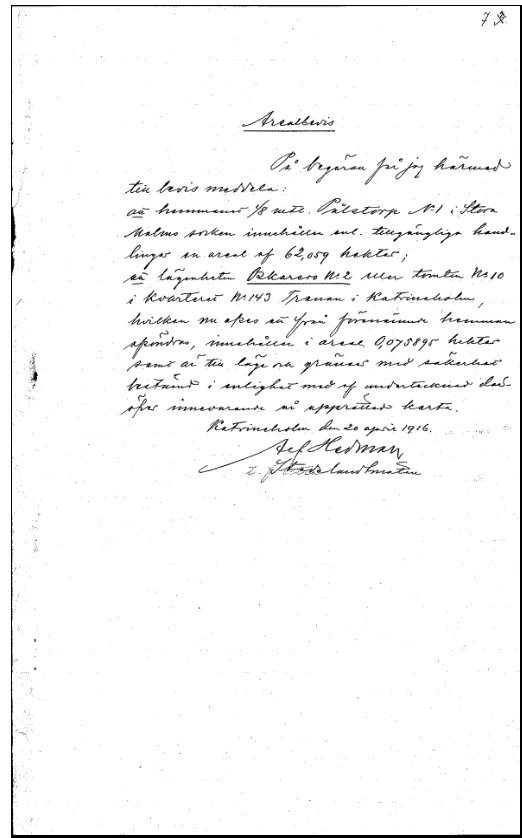 7
Arealbevis
På begäran får jag härmed
till bevis meddela:
att hemmanet 1/8 mtl. Pålstorp No 1 i Stora
Malms socken innehåller enl. tillgängliga hand-
lingar en areal af 62,059 hektar;
att lägenheten Oskarsro No 2 eller tomten No 10
i kvarteret No 143 Tranan i Katrineholm,
hvilken nu afses att från förenämnde hemman
afsöndras, innehåller i areal 0,075895 hektar
samt är till läge och gränser med säkerhet
bestämd i enlighet med af undertecknad där-
öfver innevarande år upprättad karta.
Katrineholm den 20 april 1916.
Hedman
Stadslandtmätare